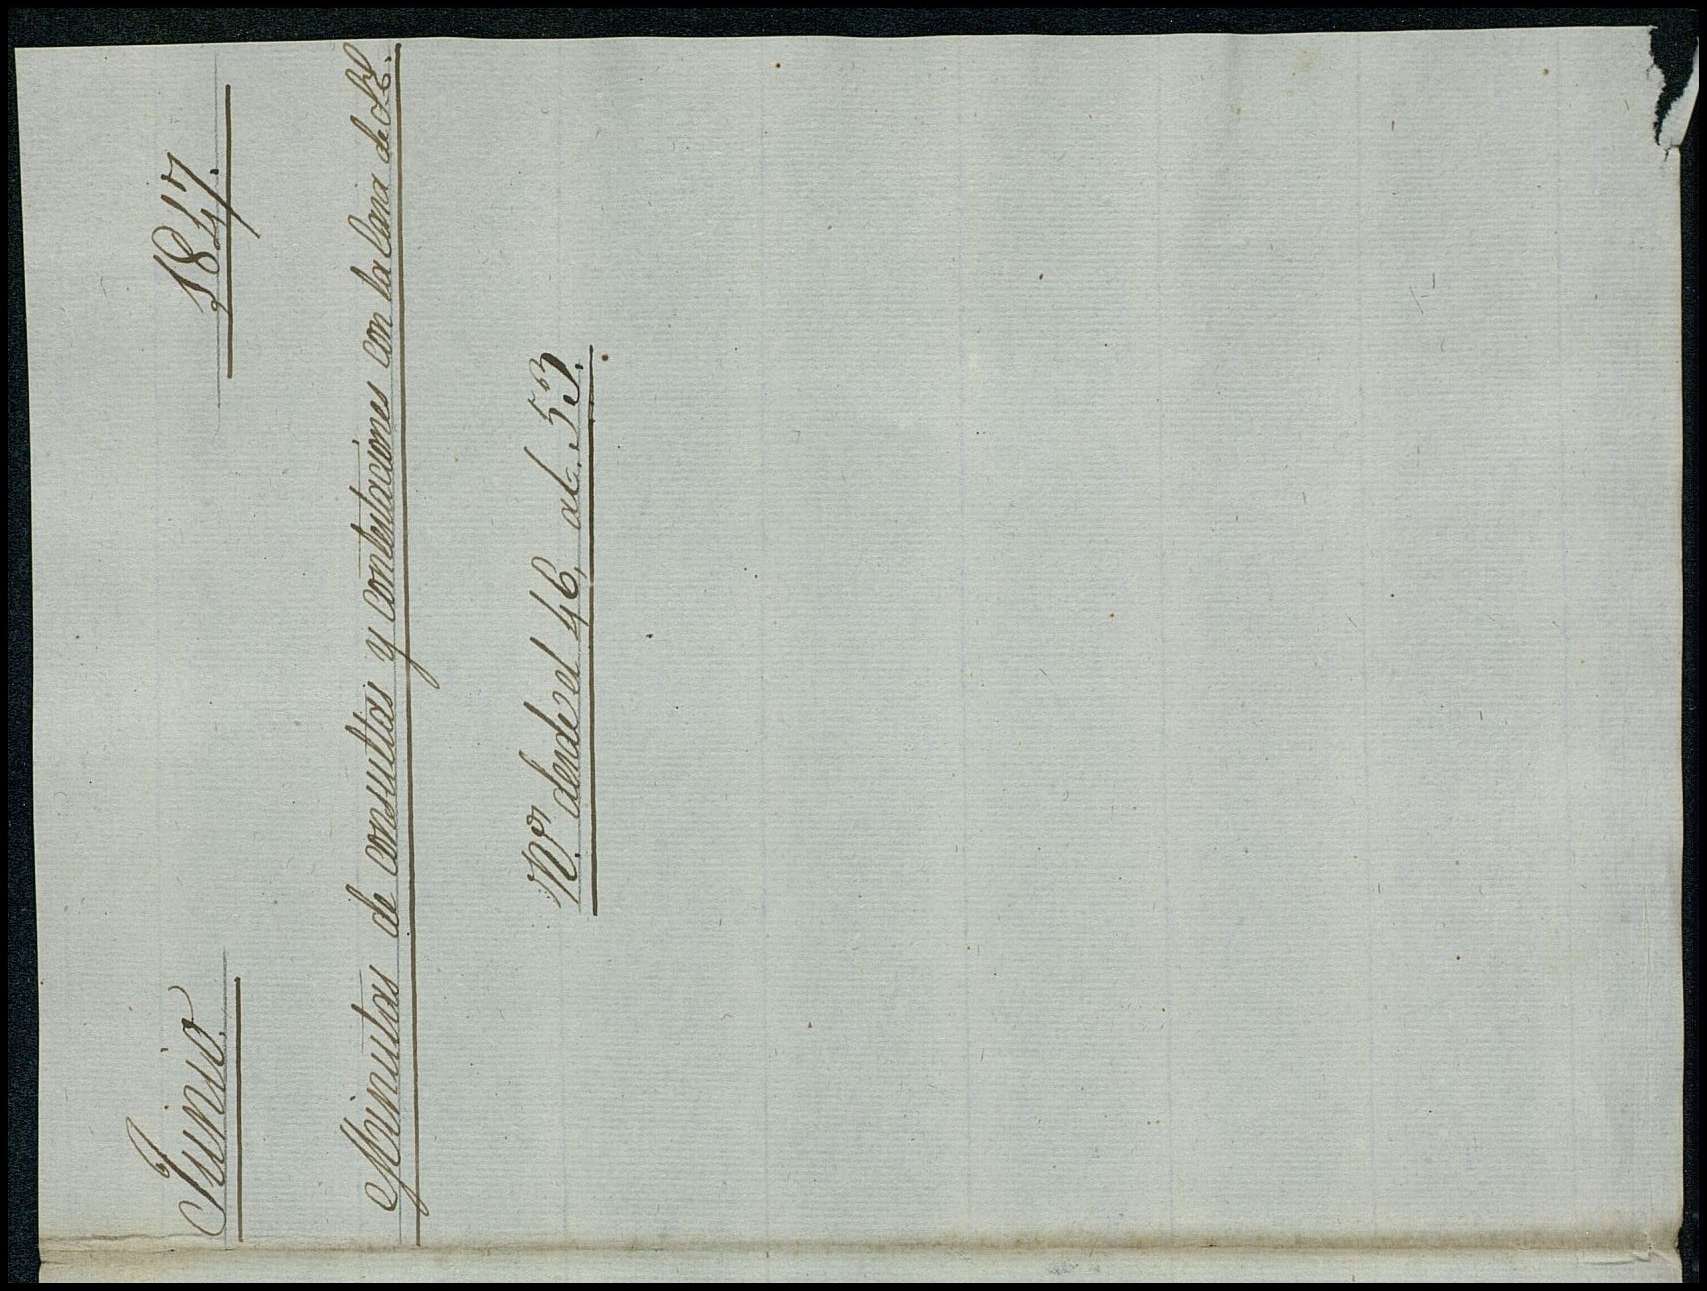 Junio 1847.
Minutas de consultas y contestaciones con la Cania de
Nos. desde el 46, al. 53.